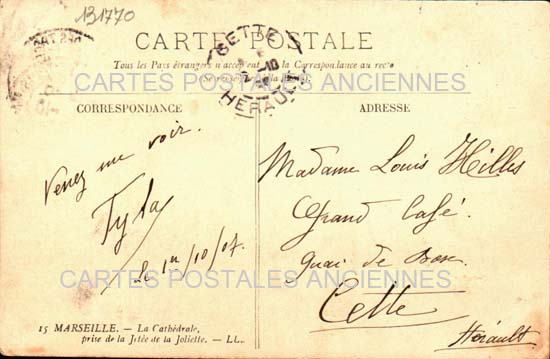 131770
CARTE POSTALE
Tous les Pays étrangers n'acceptent pas la Correspondance au recto
CETTE
2 -10
HERAULT
CARTES POSTALES ANCIENNES
CORRESPONDANCE
ADRESSE
Venez me voir.
le 1er/10/07
Madame Louis Hilles
Grand Café.
Quai de Bosc
Cette
Hérault
CARTES POSTALES ANCIENNES
15 MARSEILLE. — La Cathédrale,
prise de la Jetée de la Joliette. — LL.